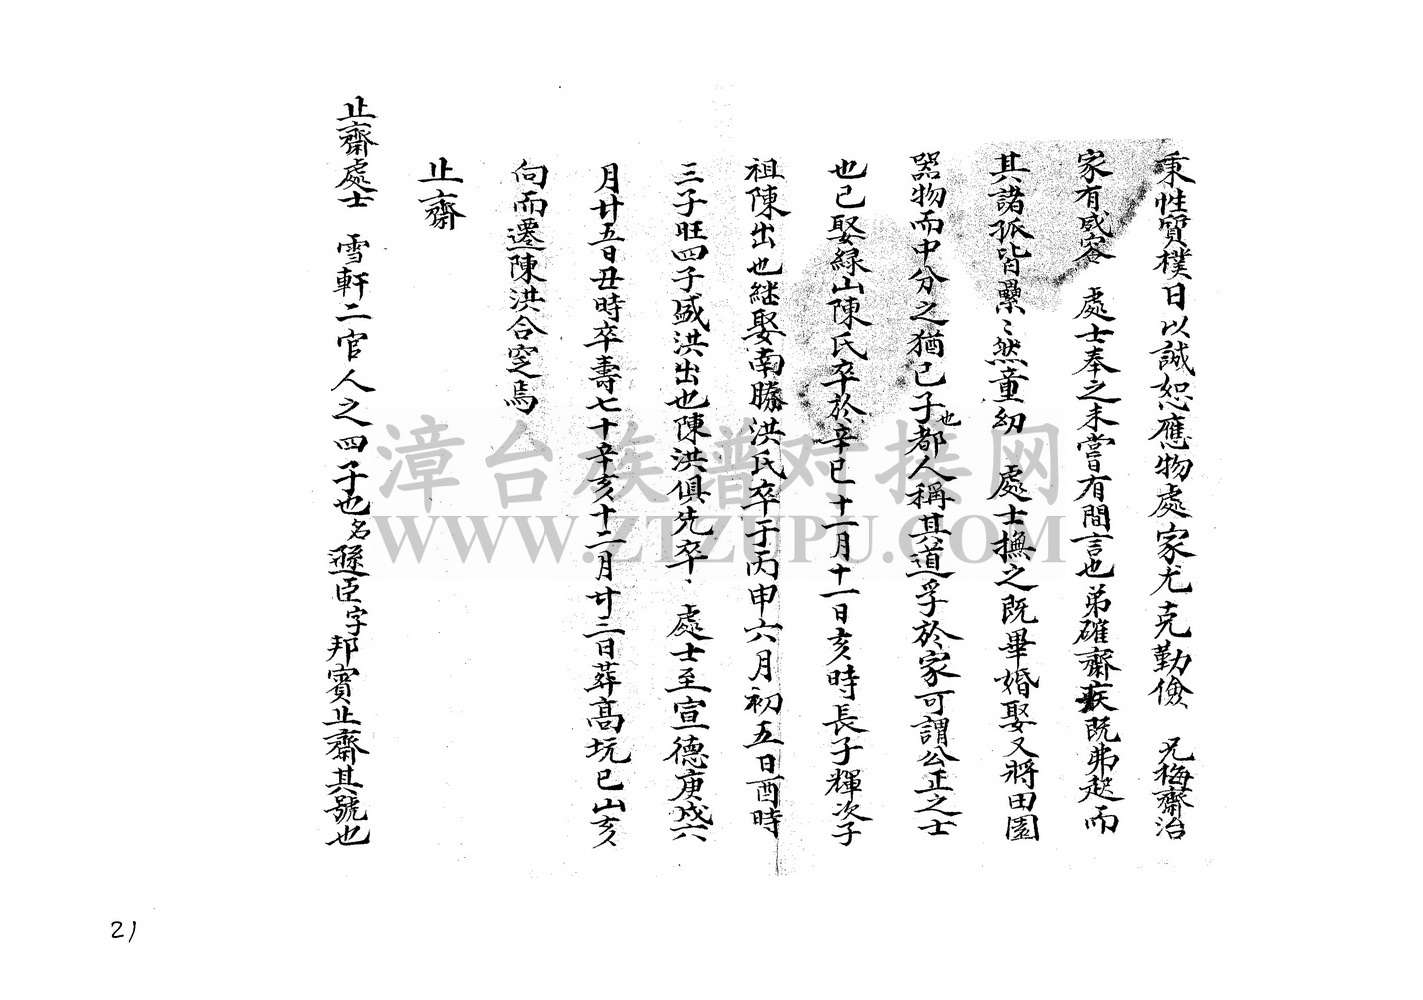 秉性質樸日以誠恕應物處家尤克勤儉　兄梅齋治
家有咸容　處士奉之未嘗有間言也弟確齋疾既弗起而
其諸孤皆纍〻然童幼　處士撫之既畢婚娶又將田園
器物而中分之猶己子也都人稱其道孚於家可謂公正之士
也已娶綠山陳氏卒於辛巳十一月十一日亥時長子輝次子
祖陳出也継娶南勝洪氏卒于丙申六月初五日酉時
三子旺四子盛洪出也陳洪俱先卒、處士至宣德庚戌六
月廿五日丑時卒壽七十辛亥十二月廿三日葬高坑巳山亥
向而遷陳洪合窆焉
止齋
止齋處士　雪軒二官人之四子也名遜臣字邦賓止齋其號也
漳台族譜对接网
WWW.ZTZUPU.COM
21